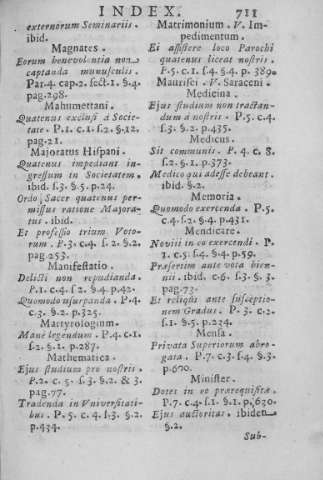 INDEX. 711
externorum Seminariis.
ibid.
Magnates.
Eorum benevolentia non
captanda munusculis.
Par.4. cap.2. sect.1. §.4.
pag.298.
Mahumettani.
Quatenus exclusi à Socie-
tate. P.1. c.1. s.2. §.12.
pag.21.
Majoratus Hispani.
Quatenus impediant in-
gressum in Societatem.
ibid. s.3. §.5. p.24.
Ordo Sacer quatenus per-
missus ratione Majora-
tus. ibid.
Et professio trium Voto-
rum. P.3. c.4. s.2. §.2.
pag.253.
Manifestatio.
Delicti non repudianda.
P.1. c.4. s.2. §.4. p.42.
Quomodo usurpanda. P.4.
c.3. §.2. p.325.
Martyrologium.
Manè legendum. P.4. c.1.
s.2. §.1. p.287.
Mathematica.
Ejus studium pro nostris.
P.2. c.5. s.3. §.2. & 3.
pag.77.
Tradenda in Universitati-
bus. P.5. c.4. s.3. §.2.
p.434.
Matrimonium. V. Im-
pedimentum.
Ei assistere loco Parochi
quatenus liceat nostris.
P.5. c.1. s.4. §.4. p.389.
Maurisci. V. Saraceni.
Medicina.
Ejus studium non tractan-
dum à nostris. P.5. c.4.
s.3. §.2. p.435.
Medicus.
Sit communis. P.4. c.8.
s.2. §.1. p.373.
Medico qui adesse debeant.
ibid. §.2.
Memoria.
Quomodo exercenda. P.5.
c.4. s.2. §.4. p.431.
Mendicare.
Novitii in eo exercendi. P.
1. c.5. s.4. §.4. p.59.
Præsertim ante vota bien-
nii. ibid. c.6. s.3. §.3.
pag.73.
Et reliqui ante susceptio-
nem Gradus. P.3. c.2.
s.1. §.5. p.234.
Mensa.
Privata Superiorum abro-
gata. P.7. c.3. s.4. §.3.
p.670.
Minister.
Dotes in eo prærequisitæ.
P.7. c.4. s.1. §.1. p.630.
Ejus auctoritas. ibidem
§.2.
Sub-